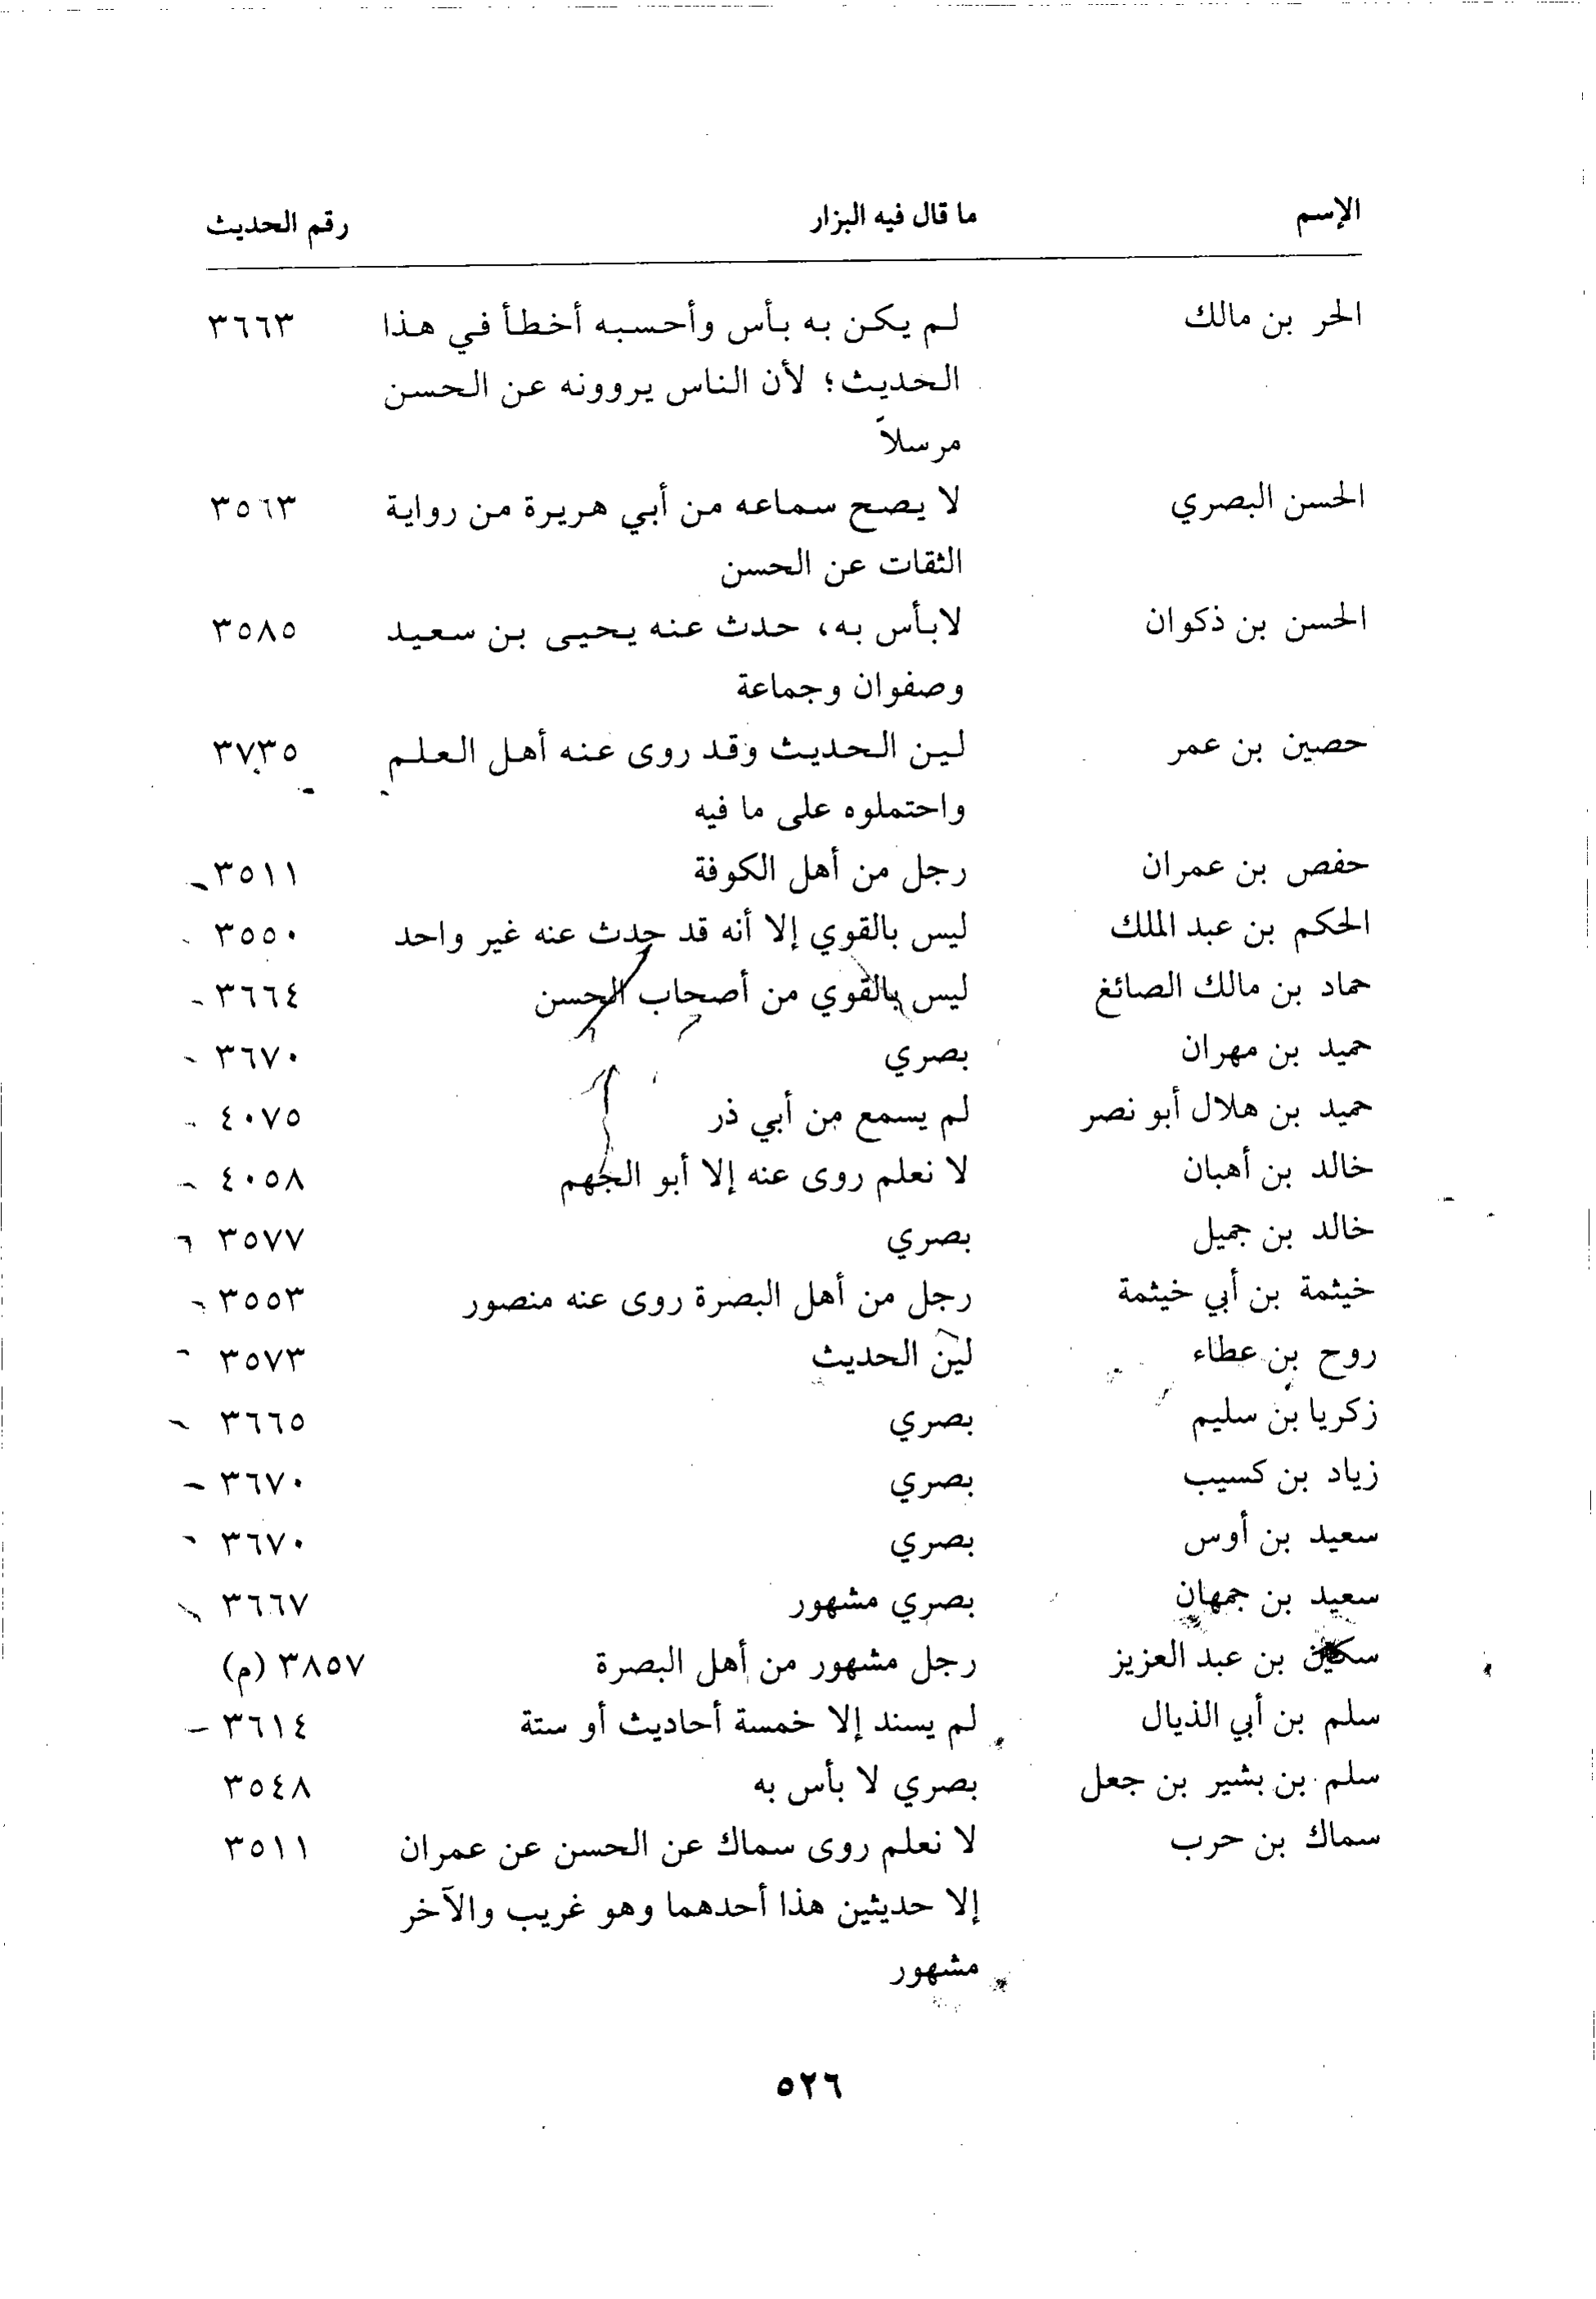 الإسم ما قال فيه البزار رقم الحديث
الحر بن مالك لم يكن به بأس وأحسبه أخطأ في هذا ٣٦٦٣
الحديث؛ لأن الناس يروونه عن الحسن
مرسلاً
الحسن البصري لا يصح سماعه من أبي هريرة من رواية ٣٥٦٣
الثقات عن الحسن
الحسن بن ذكوان لابأس به، حدث عنه يحيى بن سعيد ٣٥٨٥
وصفوان وجماعة
حصين بن عمر لين الحديث وقد روى عنه أهل العلم ٣٧٣٥
واحتملوه على ما فيه
حفص بن عمران رجل من أهل الكوفة ٣٥١١
الحكم بن عبد الملك ليس بالقوي إلا أنه قد حدث عنه غير واحد ٣٥٥٠
حماد بن مالك الصائغ ليس بالقوي من أصحاب الحسن ٣٦٦٤
حميد بن مهران بصري ٣٦٧٠
حميد بن هلال أبو نصر لم يسمع من أبي ذر ٤٠٧٥
خالد بن أهبان لا نعلم روى عنه إلا أبو الجهم ٤٠٥٨
خالد بن جميل بصري ٣٥٧٧
خيثمة بن أبي خيثمة رجل من أهل البصرة روى عنه منصور ٣٥٥٣
روح بن عطاء لين الحديث ٣٥٧٣
زكريا بن سليم بصري ٣٦٦٥
زياد بن كسيب بصري ٣٦٧٠
سعيد بن أوس بصري ٣٦٧٠
سعيد بن جمهان بصري مشهور ٣٦٦٧
سكين بن عبد العزيز رجل مشهور من أهل البصرة ٣٨٥٧ (م)
سلم بن أبي الذيال لم يسند إلا خمسة أحاديث أو ستة ٣٦١٤
سلم بن بشير بن جعل بصري لا بأس به ٣٥٤٨
سماك بن حرب لا نعلم روى سماك عن الحسن عن عمران ٣٥١١
إلا حديثين هذا أحدهما وهو غريب والآخر
مشهور
٥٢٦